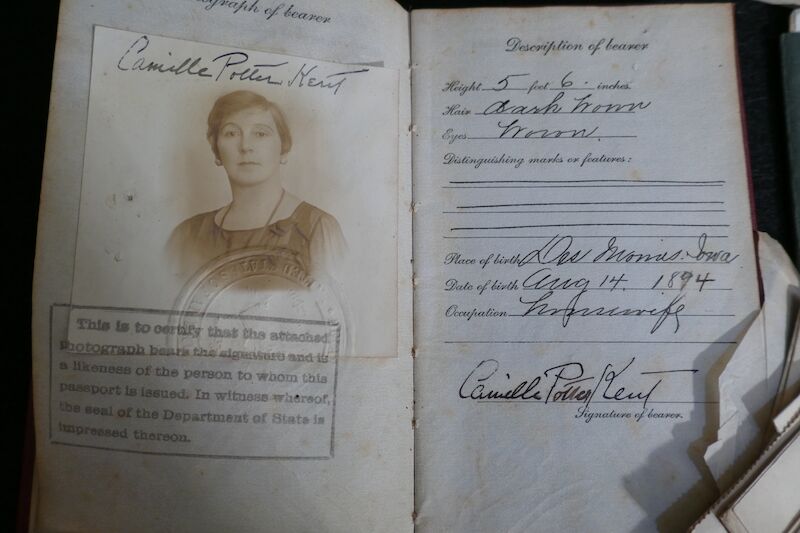 Photograph of bearer
Camille Potter Kent
This is to certify that the attached
photograph bears the signature and is
a likeness of the person to whom this
passport is issued. In witness whereof,
the seal of the Department of State is
impressed thereon.
Description of bearer
Height 5 feet 6 inches.
Hair Dark brown
Eyes brown.
Distinguishing marks or features:
Place of birth Des Moines. Iowa
Date of birth Aug 14. 1894
Occupation housewife
Camille Potter Kent
Signature of bearer.